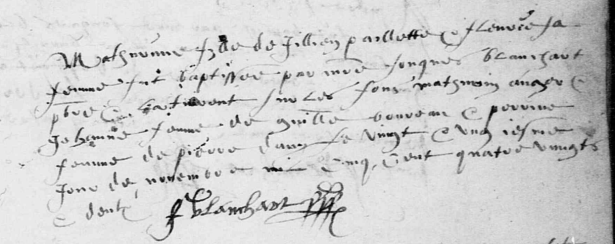 Mathurinne fille de Jullien paillette & fleurie sa
femme fut baptissée par mre Jouques blanchart
pbre & tindrent sur les fons mathurin auger &
Jehanne femme de guille bouveau & perrine
femme de pierre le vingt & ungiesme
Jour de novembre mil cinq cent quatre vingts
& deux
J blanchart